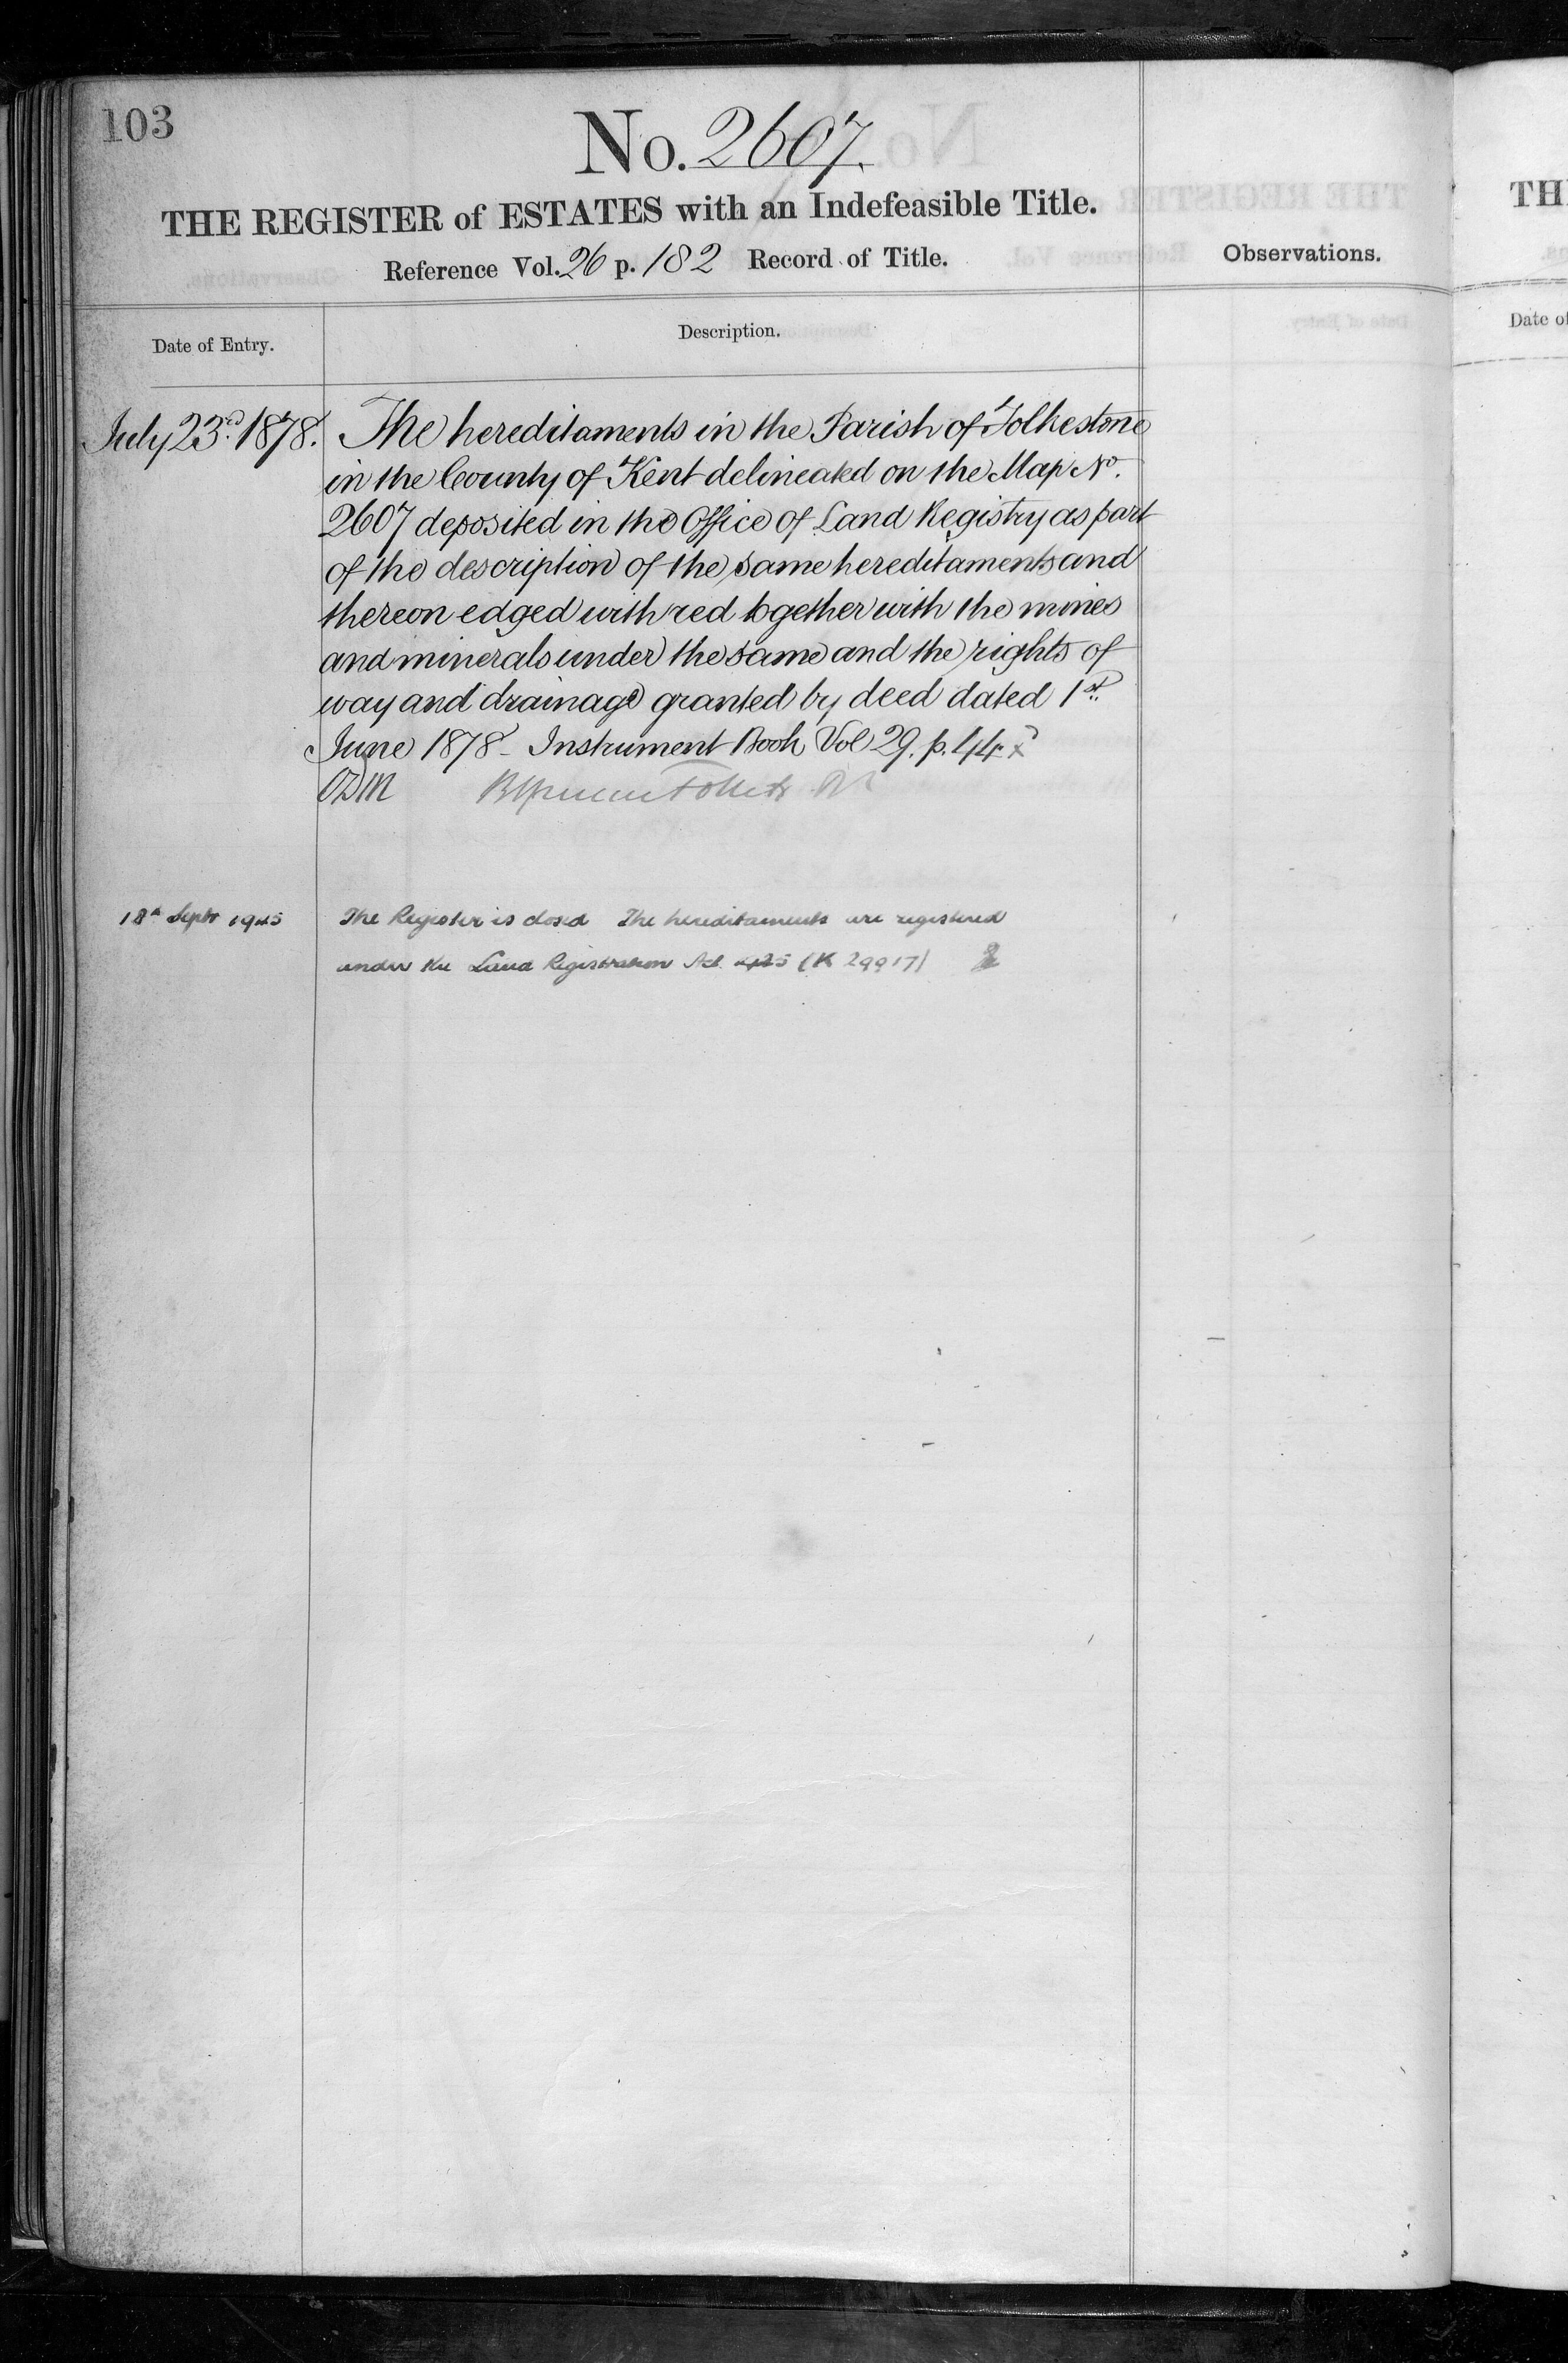 103
No. 2607.
THE REGISTER of ESTATES with an Indefeasible Title.
Reference Vol. 26 p. 182 Record of Title.
Observations.
Date of Entry.
Description.
July 23rd 1878. The hereditaments in the Parish of Folkestone
in the County of Kent delineated on the Map No.
2607 deposited in the Office of Land Registry as part
of the description of the same hereditaments and
thereon edged with red together with the mines
and minerals under the same and the rights of
way and drainage granted by deed dated 1st.
June 1878 - Instrument Book Vol 29. p. 44 x
18th Septr The Register is closed The hereditaments are registered
under the Land Registration Act (K 29917)
TH
Date of